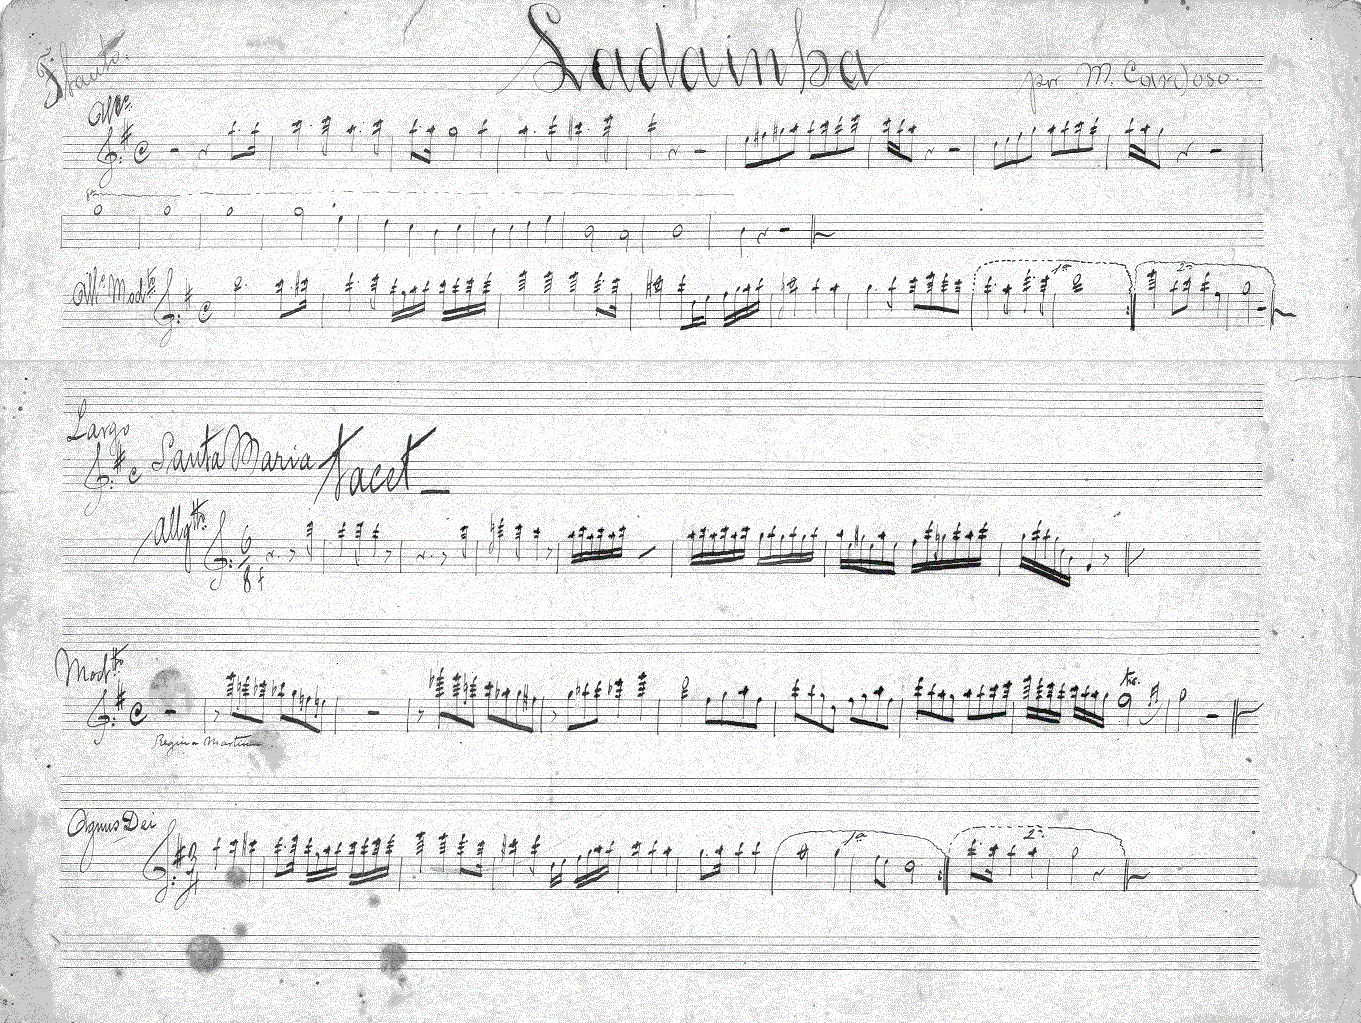 Flauto.
Ladainha
por M. Cardoso.
Allo.
8va
All.o Mod.to
1a
2a
Largo
Santa Maria tacet
Allg.tto
6
8
Mod.to
tr.
Regina Martirum
Agnus Dei
3
4
1a
2a